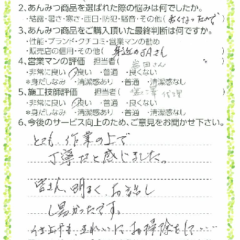 2.あんみつ商品を選ばれた際の悩みは何でしたか。
・結露・暑さ・寒さ・西日・防犯・騒音・その他(
3.あんみつ商品をご購入頂いた最終判断は何ですか。
・性能・ブランド・クチコミ・営業マンの勧め
・販売店の勧め・その他(
4.営業マンの評価 担当者(
・非常に良い ・良い ・普通 ・良くない
※身だしなみ ・清潔感あり ・普通 ・清潔感なし
5.施工技師評価 担当者(
・非常に良い ・良い ・普通 ・良くない
※身だしなみ ・清潔感あり ・普通 ・清潔感なし
6.今後のサービス向上のため、ご意見をお聞かせ下さい。
とても、作業の上で
丁寧だと感じました。
皆さん、明るく、お話し
し易かったです。
仕上げも、きれいにお掃除をして